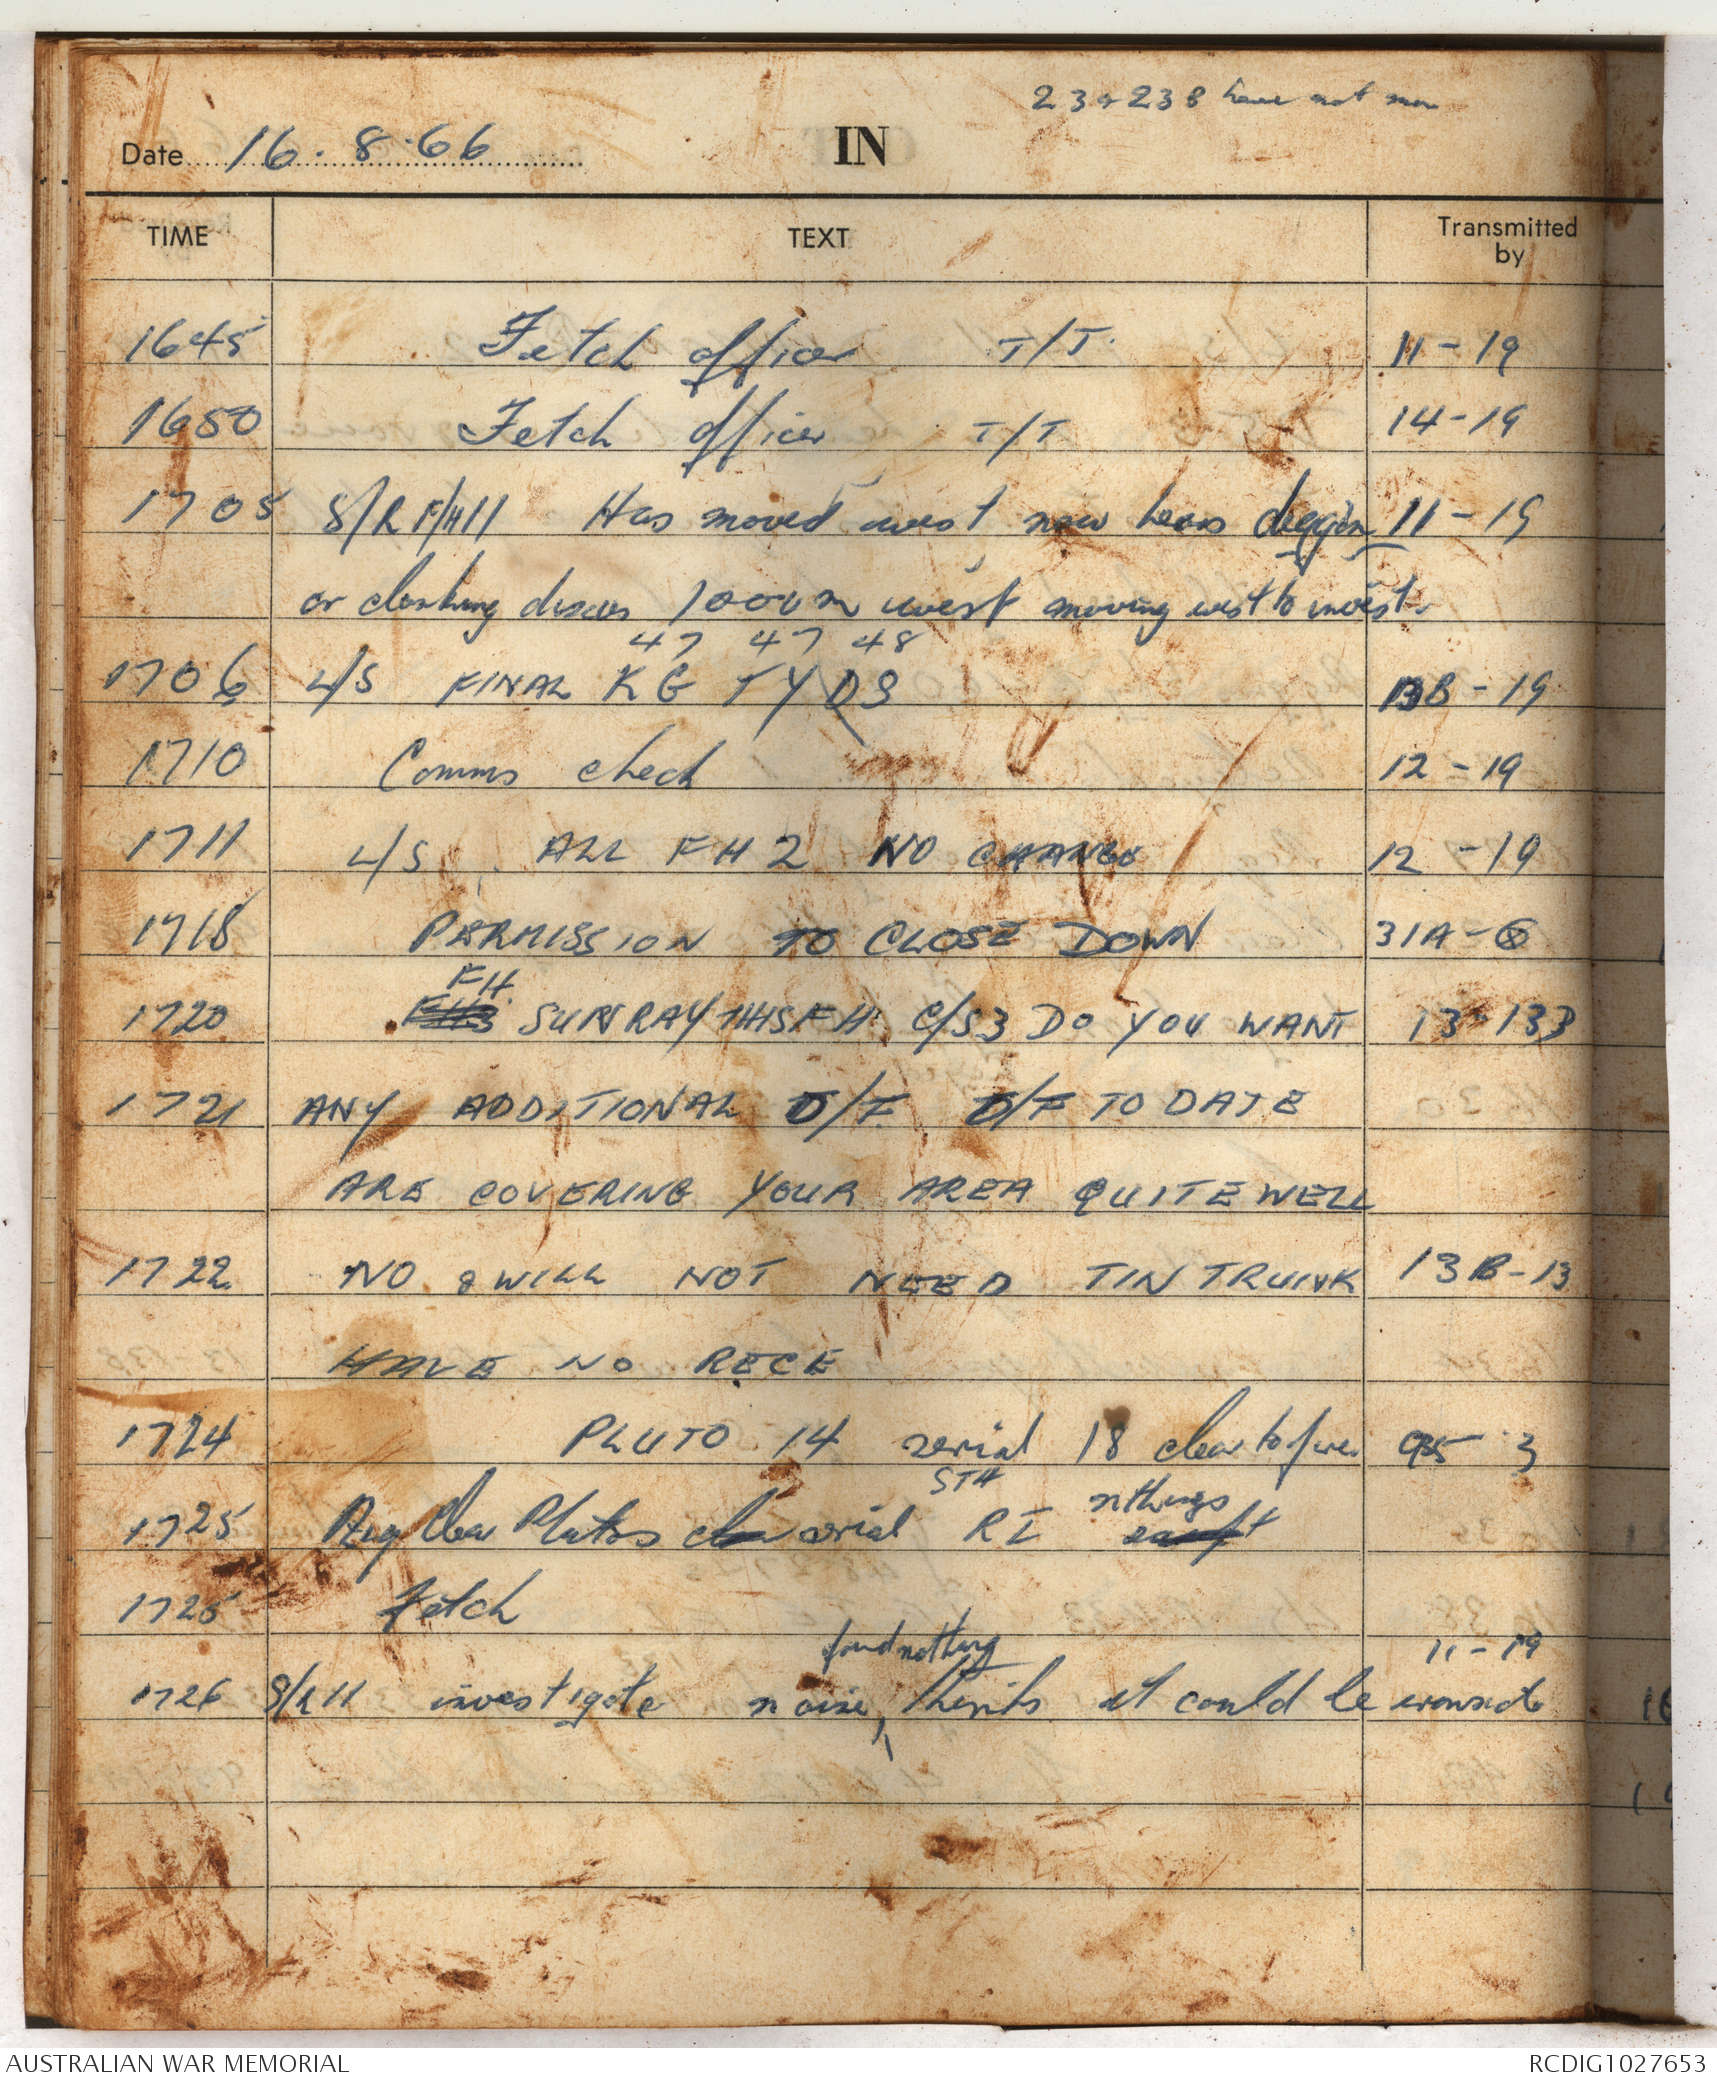 23 & 23B have not
Date 16.8.66 IN
TIME TEXT Transmitted by
1645 Fetch officer T/T. 11-19
1650 Fetch officer T/T 14-19
1705 S/R F/H11 Has moved west now hears diggin 11-19
or clanking discs 1000m west moving west to invest.
47 47 48
1706 L/S FINAL KG TY DS 13B-19
1710 Comms check 12-19
1711 L/S ALL FH2 NO CHANGE 12-19
1718 PERMISSION TO CLOSE DOWN 31A-
FH.
1720 SUNRAY THIS FH. C/S3 DO YOU WANT 13-133
1721 ANY ADDITIONAL D/F. D/F TO DATE
ARE COVERING YOUR AREA QUITE WELL
1722 NO & WILL NOT NEED TIN TRUNK 13B-13
HAVE NO RECE
1724 PLUTO 14 serial 18 clear to fire 95 3
STH nthngs
1725 Clear Plutos serial RI
1725 Fetch
found nothing 11-19
1726 S/R 11 investigate noise, thinks it could be
AUSTRALIAN WAR MEMORIAL RCDIG1027653